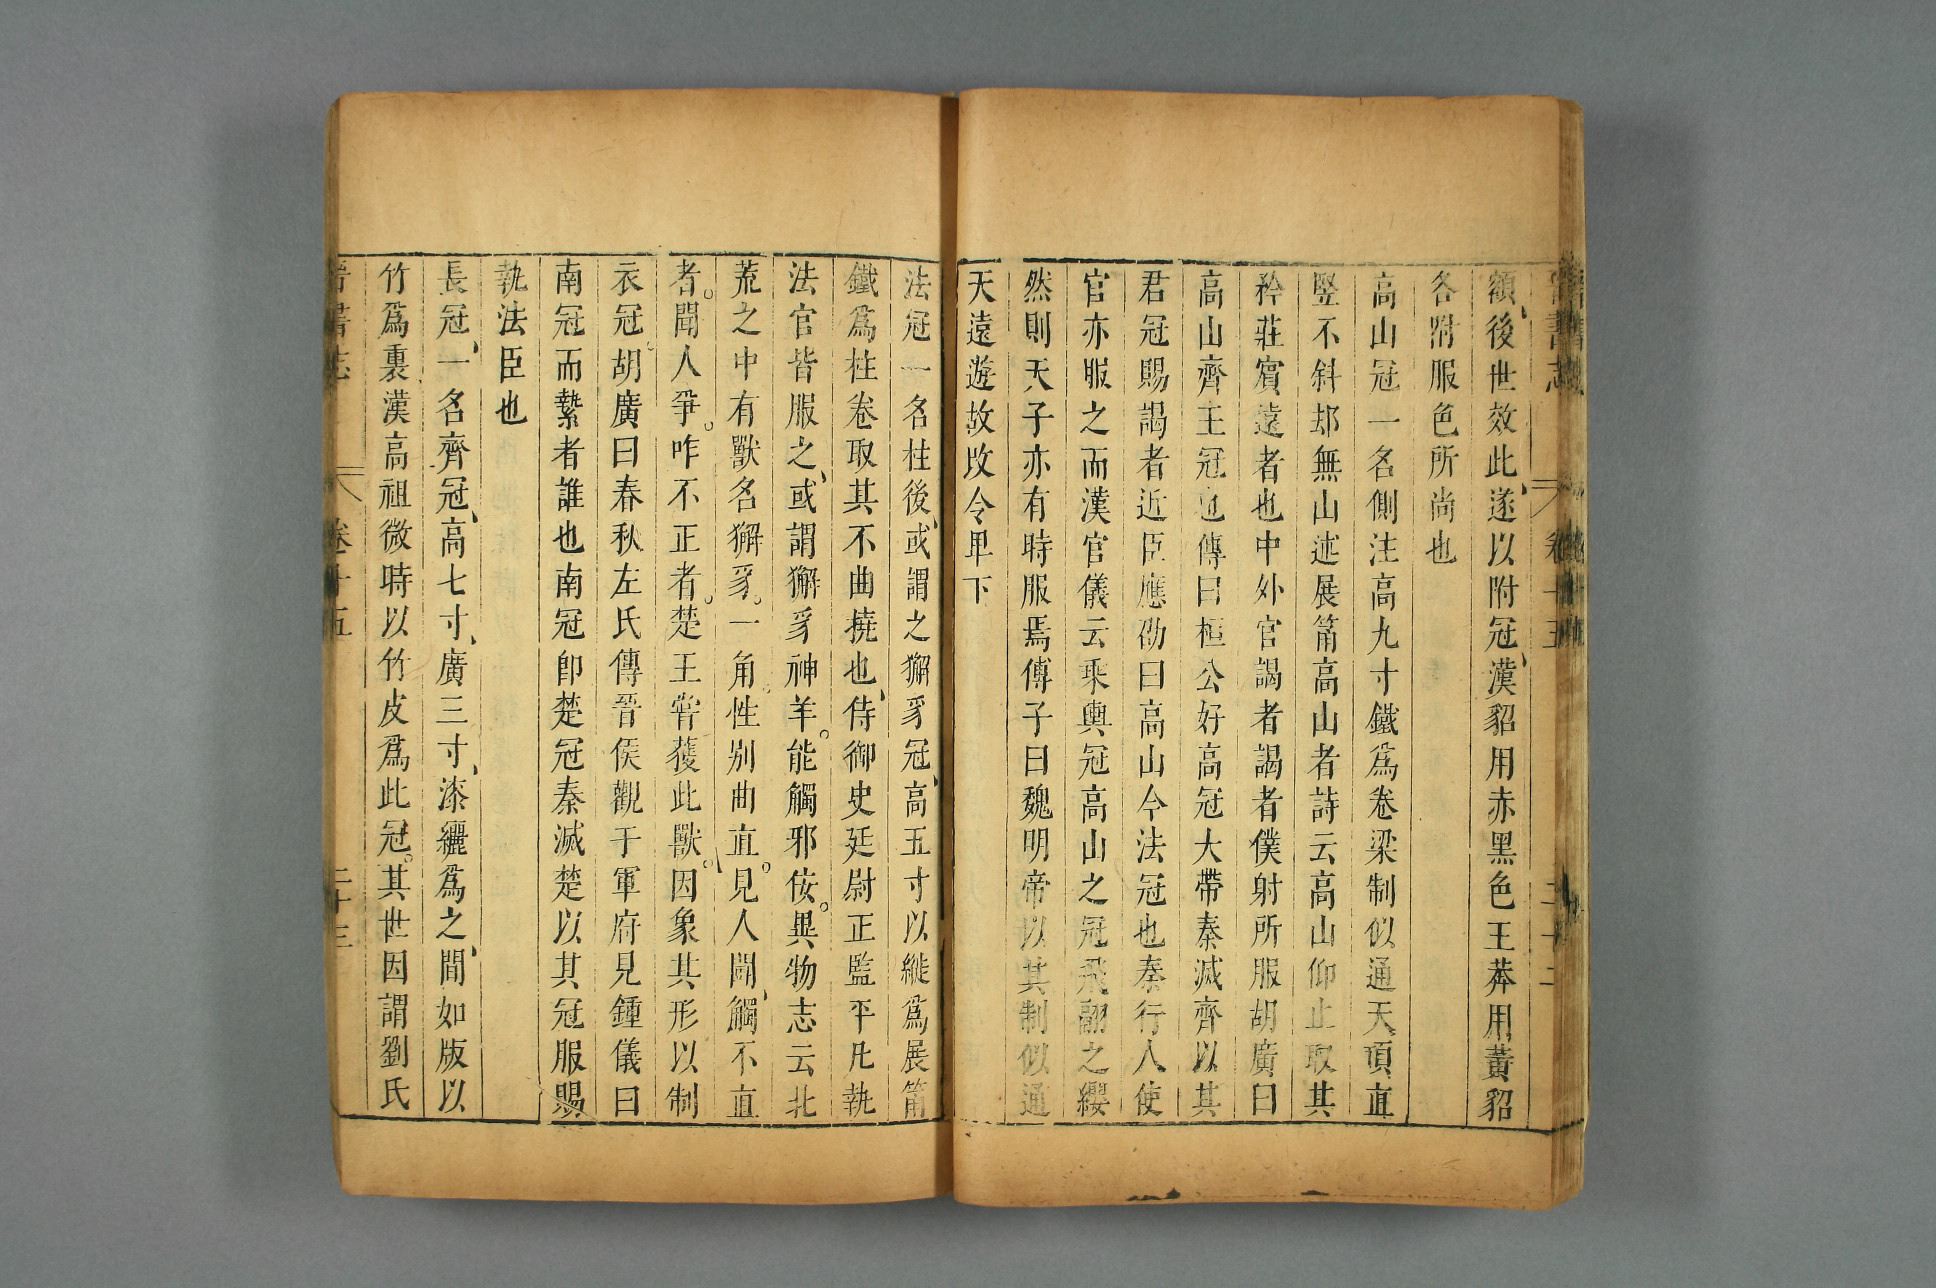 額後世效此遂以附冠漢貂用赤黑色王莽用黃貂
各附服色所尚也
高山冠一名側注高九寸鐵爲卷梁制似通天頂直
豎不斜却無山述展筩高山者詩云高山仰止取其
矜莊賓遠者也中外官謁者謁者僕射所服胡廣曰
高山齊王冠也傳曰桓公好高冠大帶秦滅齊以其
君冠賜謁者近臣應劭曰高山今法冠也秦行人使
官亦服之而漢官儀云乘輿冠高山之冠飛翮之纓
然則天子亦有時服焉傅子曰魏明帝以其制似通
天遠遊故改令卑下
法冠一名柱後或謂之獬豸冠高五寸以縰爲展筩
鐵爲柱卷取其不曲撓也侍御史廷尉正監平凡執
法官皆服之或謂獬豸神羊能觸邪佞異物志云北
荒之中有獸名獬豸一角性別曲直見人鬬觸不直
者聞人爭咋不正者楚王嘗獲此獸因象其形以制
衣冠胡廣曰春秋左氏傳晉侯觀于軍府見鍾儀曰
南冠而縶者誰也南冠卽楚冠秦滅楚以其冠服賜
執法臣也
長冠一名齊冠高七寸廣三寸漆纚爲之間如版以
竹爲裏漢高祖微時以竹皮爲此冠其世因謂劉氏
晉書志 卷十五 二十三